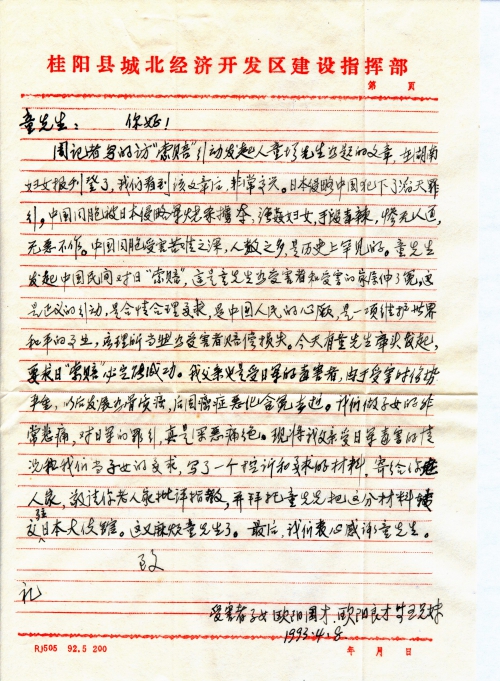 桂阳县城北经济开发区建设指挥部
第 页
童先生： 你好！
周记者写的访"索赔"引动发起人童增先生为题的文章，在湖南
妇女报刊登了，我们看到该文章后，非常高兴。日本侵略中国犯下了滔天罪
引。中国同胞被日本侵略军烧杀掳夺，强姦妇女，手段毒辣，惨无人道，
无恶不作。中国同胞受害苦情之深，人数之多，是历史上罕见的。童先生
发起中国民间对日"索赔"，这是童先生为受害者和受害的家属伸了冤，这
是正义的引动，是合情合理要求，是中国人民的心愿，是一项维护世界
和平的事业，应理所当然为受害者赔偿损失。今天有童先生牵头发起，
要求日"索赔"必定得成功。我父亲也是受日军的毒害者，由于受害时伤势
严重，以后发展为骨癌，后因癌症恶化含冤去世。我们做子女的非
常悲痛，对日军的罪引，真是深恶痛绝。现将我父亲受日军毒害的情
况和我们当子女的要求，写了一个控诉和要求的材料，寄给你老
人家，敬请你老人家批评指教，并拜托童先生把这份材料转
交驻日本大使馆。这又麻烦童先生了。最后，我们衷心感谢童先生。
致
礼
受害者子女欧阳国才、欧阳良才等兄妹
1993.4.8
RJ505 92.5 200
年 月 日